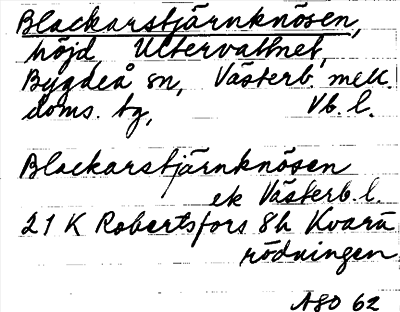 Blackarstjärnknösen,
höjd, Uttervattnet,
Bygdeå sn, Västerb. mell.
doms. tg, Vb. l.
Blackarstjärnknösen
ek Västerb. l.
21 K Robertsfors 8h Kvarn
rödningen
ASO 62